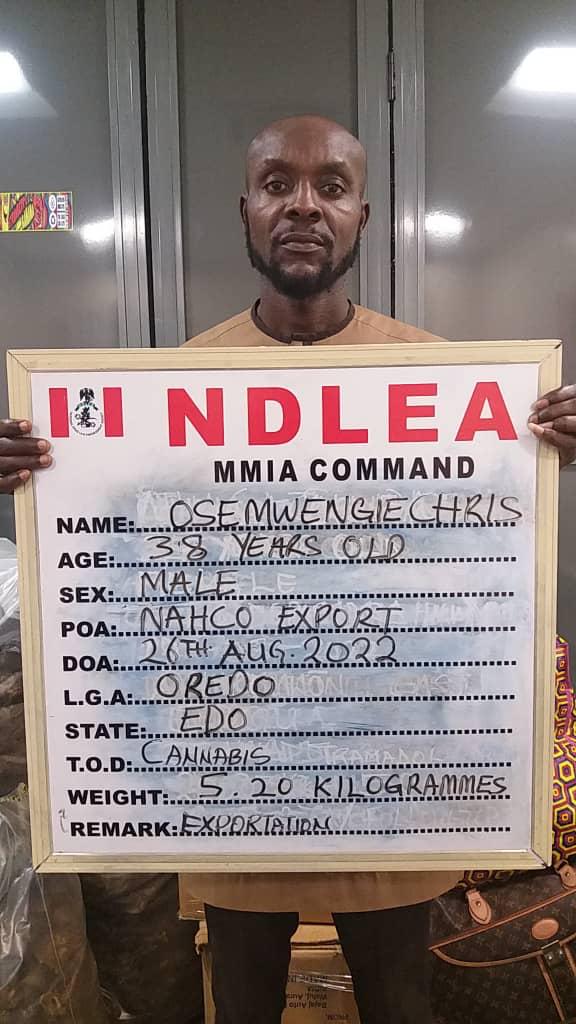 NDLEA
MMIA COMMAND
NAME: OSEMWENGIE CHRIS
AGE: 38 YEARS OLD
SEX: MALE
POA: NAHCO EXPORT
DOA: 26TH AUG. 2022
L.G.A: OREDO
STATE: EDO
T.O.D: CANNABIS
WEIGHT: 5.20 KILOGRAMMES
REMARK: EXPORTATION
Bajaj Auto